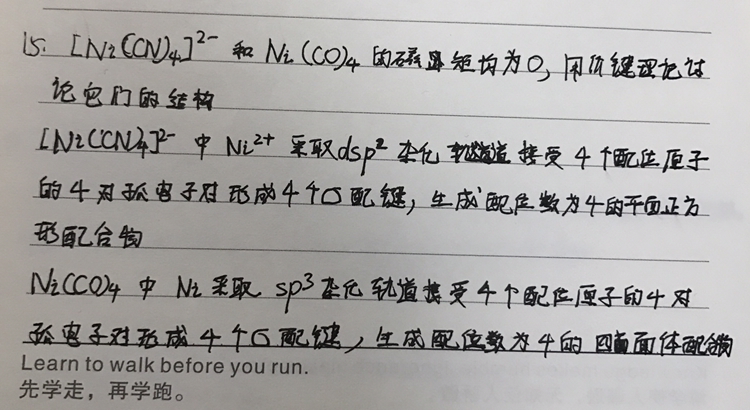 15. [Ni(CN)4]2- 和 Ni(CO)4 的磁矩均为0,用价键理论讨
论它们的结构
[Ni(CN)4]2- 中 Ni2+ 采取dsp2 杂化轨道接受 4个配位原子
的4对孤电子对形成4个σ配键,生成配位数为4的平面正方
形配合物
Ni(CO)4 中 Ni 采取 sp3 杂化轨道接受4个配位原子的4对
孤电子对形成4个σ配键,生成配位数为4的四面体配合物
Learn to walk before you run.
先学走,再学跑。